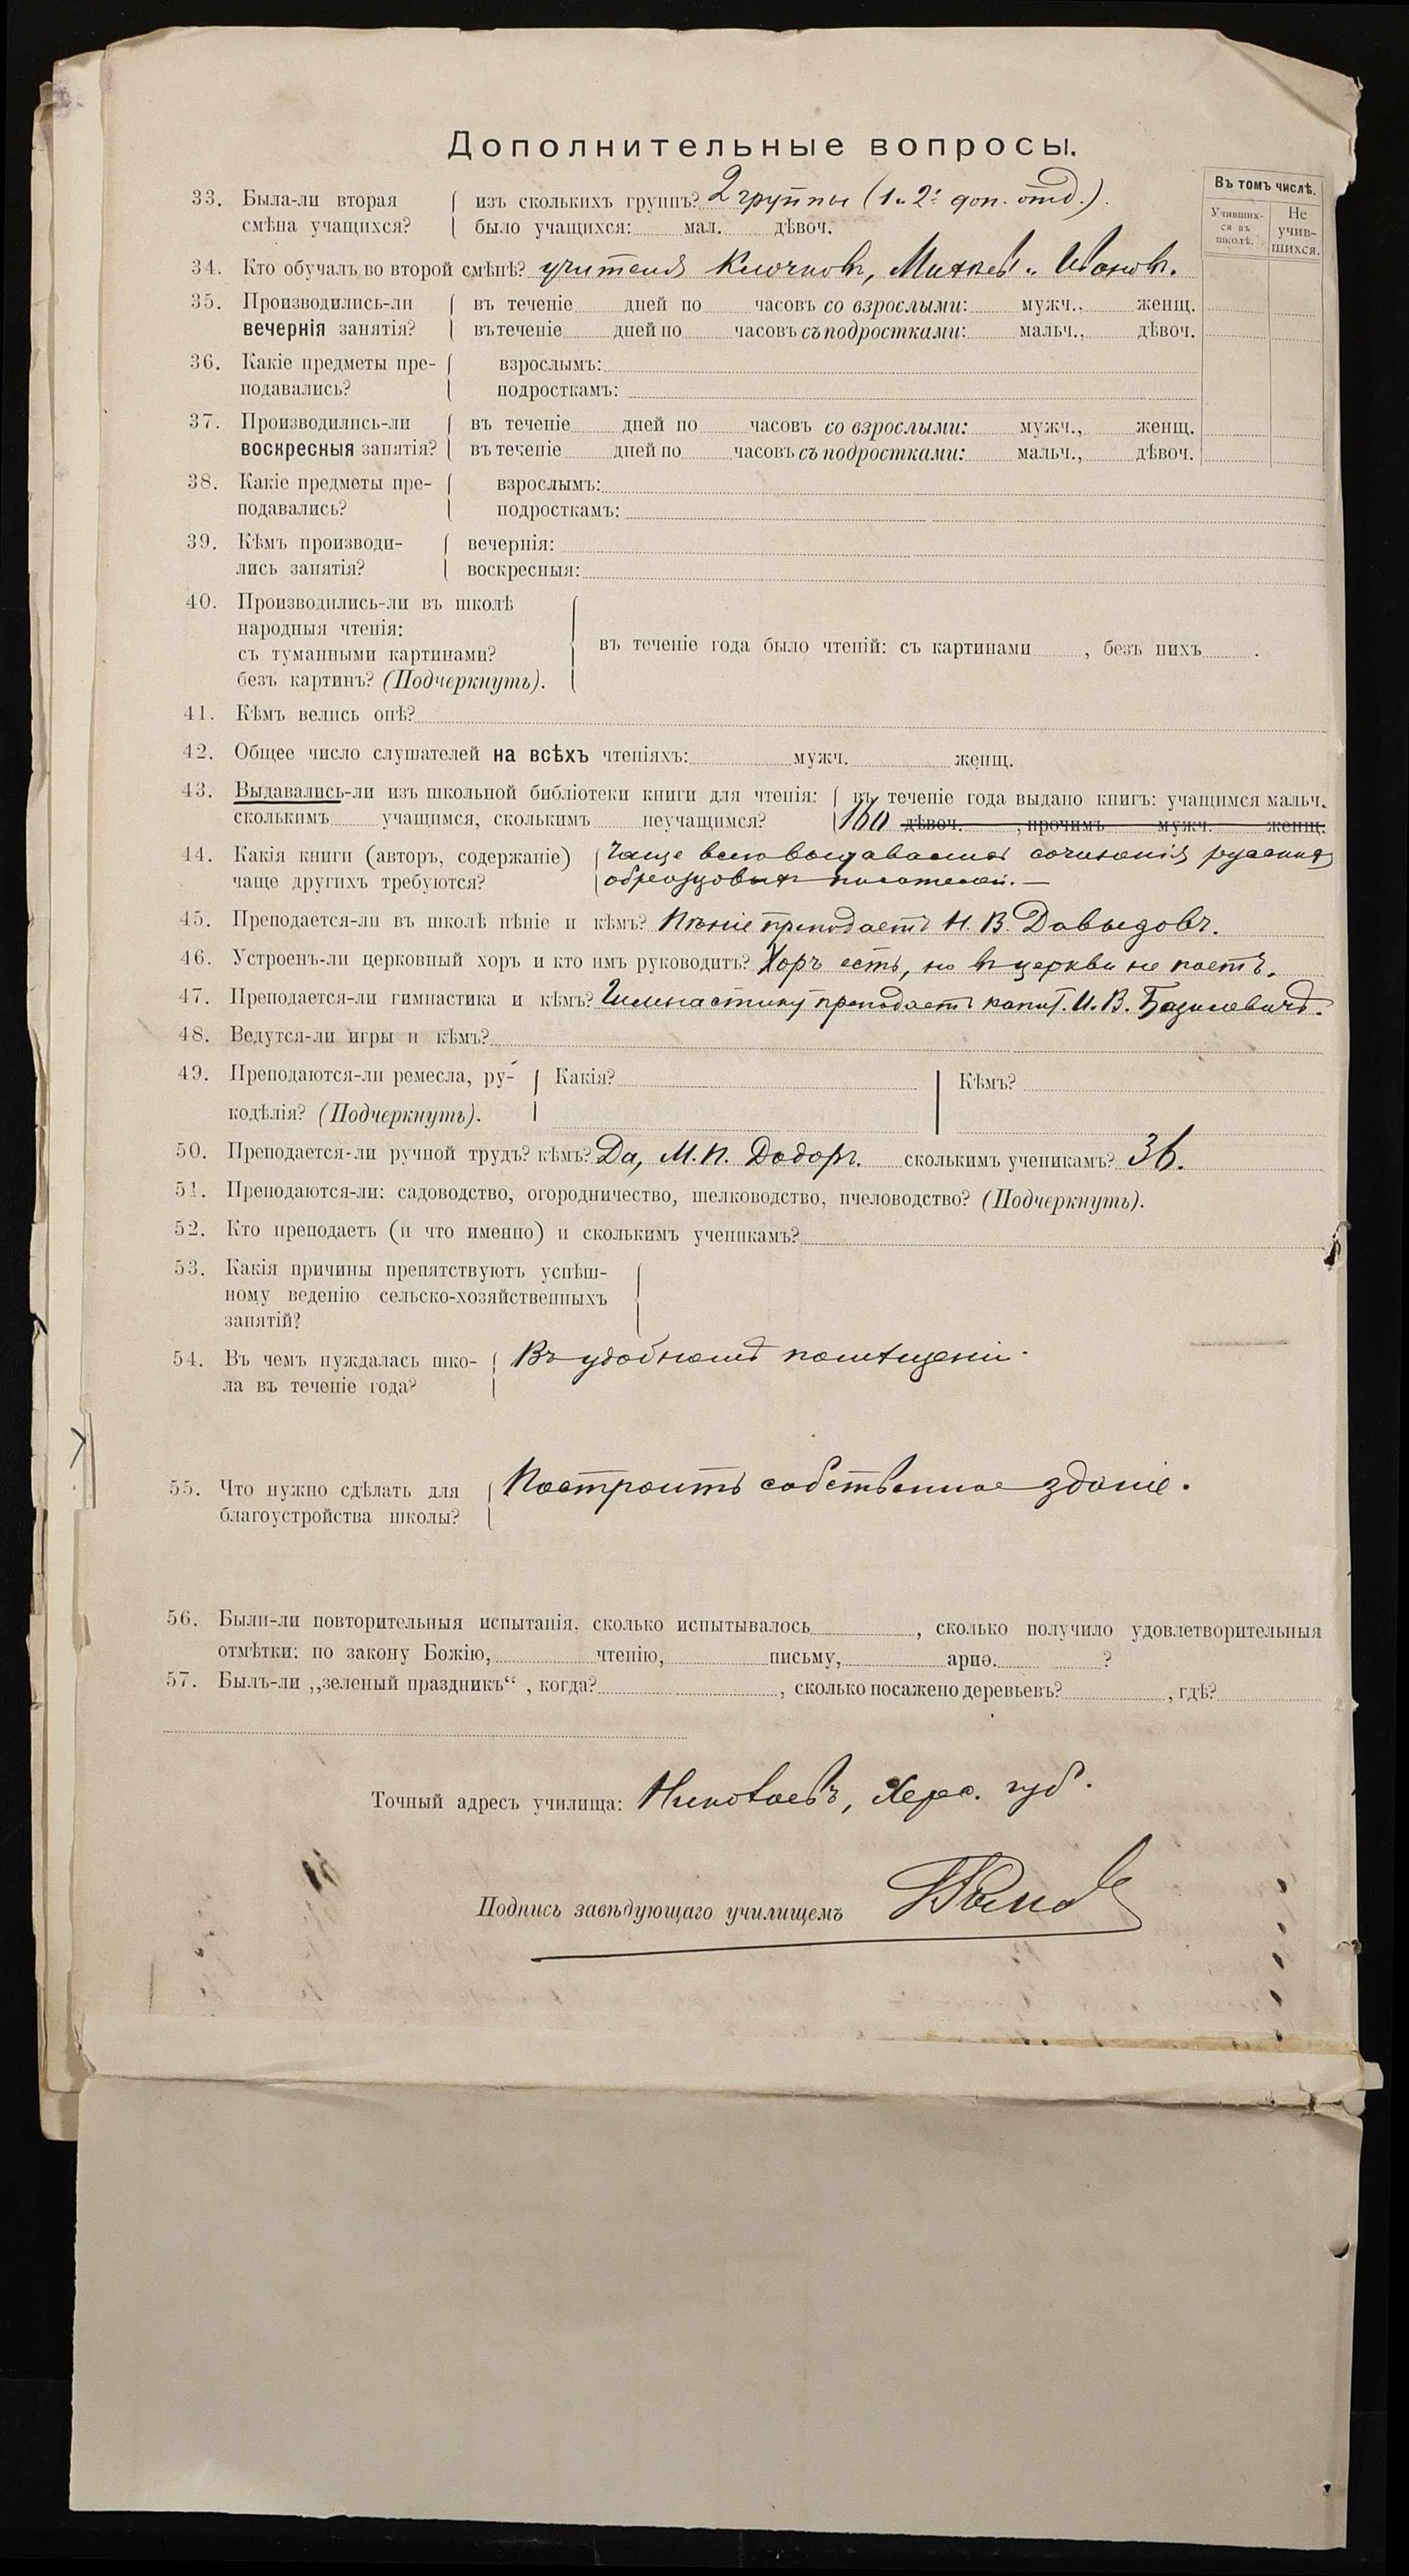 Дополнительные вопросы.
Въ томъ числѣ.
Учивших-
ся въ
школѣ.
Не
учив-
шихся.
33. Была-ли вторая { изъ сколькихъ группъ? 2 группы (1 и 2: доп. отд.).
смѣна учащихся? { было учащихся: мал. дѣвоч.
34. Кто обучалъ во второй смѣнѣ? учителя Клочковъ, и Ивановъ.
35. Производились-ли { въ теченіе дней по часовъ со взрослыми: мужч., женщ.
вечернія занятія? { въ теченіе дней по часовъ съ подростками: мальч., дѣвоч.
36. Какіе предметы пре- { взрослымъ:
подавались? { подросткамъ:
37. Производились-ли { въ теченіе дней по часовъ со взрослыми: мужч., женщ.
воскресныя занятія? { въ теченіе дней по часовъ съ подростками: мальч., дѣвоч.
38. Какіе предметы пре- { взрослымъ:
подавались? { подросткамъ:
39. Кѣмъ производи- { вечернія:
лись занятія? { воскресныя:
40. Производились-ли въ школѣ
народныя чтенія:
съ туманными картинами? { въ теченіе года было чтеній: съ картинами , безъ нихъ .
безъ картинъ? (Подчеркнуть).
41. Кѣмъ велись онѣ?
42. Общее число слушателей на всѣхъ чтеніяхъ: мужч. женщ.
43. Выдавались-ли изъ школьной библіотеки книги для чтенія: { въ теченіе года выдано книгъ: учащимся мальч.
сколькимъ учащимся, сколькимъ неучащимся? { 160 дѣвоч. , прочимъ мужч. женщ.
44. Какія книги (авторъ, содержаніе) { Чаще всего выдавались сочиненія русскихъ
чаще другихъ требуются? { образцовыхъ писателей. —
45. Преподается-ли въ школѣ пѣніе и кѣмъ? Пѣніе преподаетъ Н. В. Давыдовъ.
46. Устроенъ-ли церковный хоръ и кто имъ руководитъ? Хоръ есть, но въ церкви не поетъ.
47. Преподается-ли гимнастика и кѣмъ? Гимнастику преподаетъ капит. И. В. Базилевичъ.
48. Ведутся-ли игры и кѣмъ?
49. Преподаются-ли ремесла, ру- { Какія? | Кѣмъ?
кодѣлія? (Подчеркнуть).
50. Преподается-ли ручной трудъ? кѣмъ? Да, М. П. сколькимъ ученикамъ? 36.
51. Преподаются-ли: садоводство, огородничество, шелководство, пчеловодство? (Подчеркнуть).
52. Кто преподаетъ (и что именно) и сколькимъ ученикамъ?
53. Какія причины препятствуютъ успѣш-
ному веденію сельско-хозяйственныхъ
занятій?
54. Въ чемъ нуждалась шко- { Въ удобномъ помѣщеніи.
ла въ теченіе года?
55. Что нужно сдѣлать для { Построить собственное зданіе.
благоустройства школы?
56. Были-ли повторительныя испытанія, сколько испытывалось , сколько получило удовлетворительныя
отмѣтки: по закону Божію, чтенію, письму, ариө. ?
57. Былъ-ли „зеленый праздникъ“ , когда? , сколько посажено деревьевъ? , гдѣ?
Точный адресъ училища: Николаевъ, Херс. губ.
Подпись завѣдующаго училищемъ